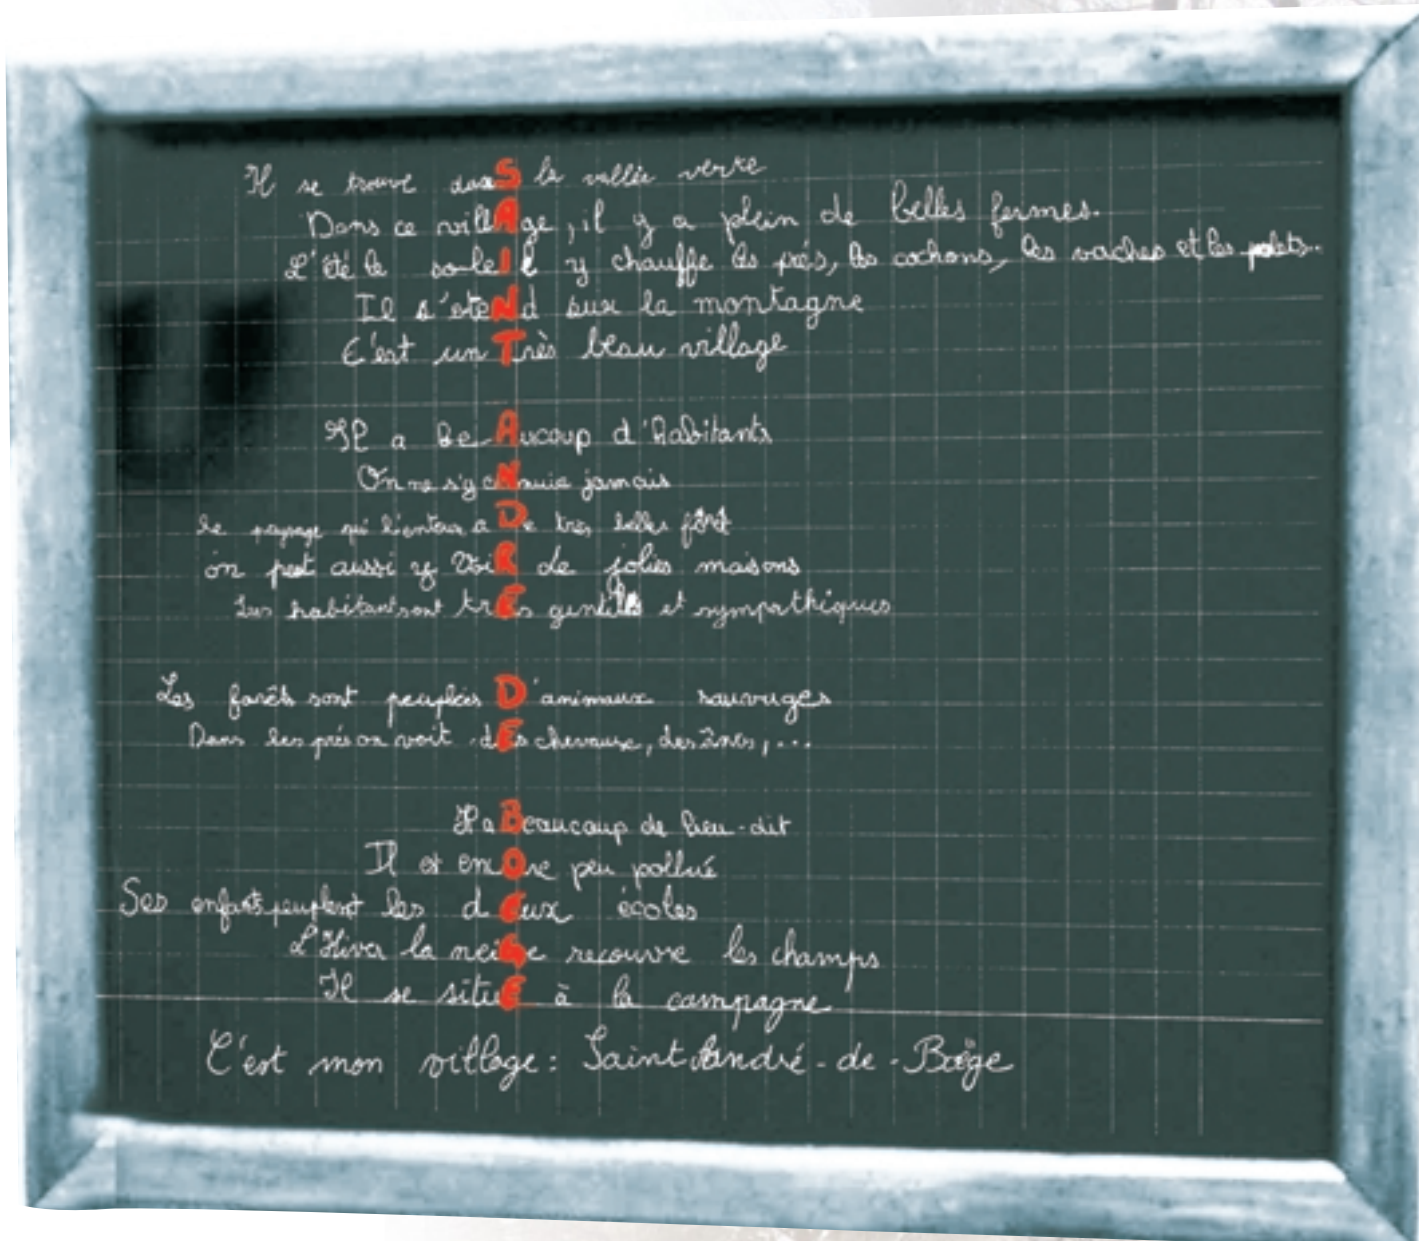 Il se trouve danS la vallée verte
Dans ce villAge, il y a plein de belles fermes.
L'été le soleIl y chauffe les prés, les cochons, les vaches et les
Il s'éteNd sur la montagne
C'est un Très beau village
Il a beAucoup d'habitants
On ne s'y enNuie jamais
le paysage qui l'entour a De très belles forêt
on peut aussi y voiR de jolies maisons
Les habitant sont trEs gentils et sympathiques
Les forêts sont peuplées D'animaux sauvages
Dans les prés on voit dEs chevaux, des ânes, ...
Il a Beaucoup de lieu-dit
Il est encOre peu pollué
Ses enfants peuplent les dEux écoles
L'Hiver la neiGe recouvre les champs
Il se situE à la campagne
C'est mon village : Saint-André-de-Boëge